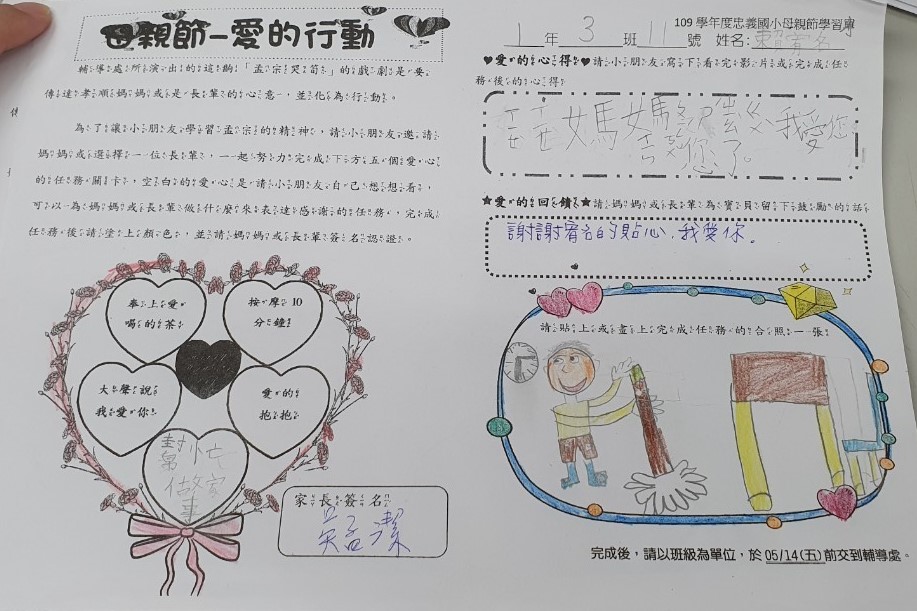 母親節—愛的行動
輔導處所演出的這齣「孟宗哭筍」的戲劇是要
傳達孝順媽媽或是長輩的心意,並化為行動。
為了讓小朋友學習孟宗的精神,請小朋友邀請
媽媽或選擇一位長輩,一起努力完成下方五個愛心
的任務關卡,空白的愛心是請小朋友自己想想看,
可以為媽媽或長輩做什麼來表達感謝的任務,完成
任務後請塗上顏色,並請媽媽或長輩簽名認證。
奉上愛
喝的茶
按摩10
分鐘!
大聲說
我愛你!
愛的
抱抱
幫忙
做家
事
家長簽名
吳孟潔
109學年度忠義國小母親節學習單
1年3班11號 姓名:
♥愛的心得♥請小朋友寫下看完影片或完成任
務後的心得
媽媽
我愛您
您了。
★愛的回饋★請媽媽或長輩為寶貝留下鼓勵的話
謝謝宥名的貼心,我愛你。
請貼上或畫上完成任務的合照一張
完成後,請以班級為單位,於05/14(五)前交到輔導處。